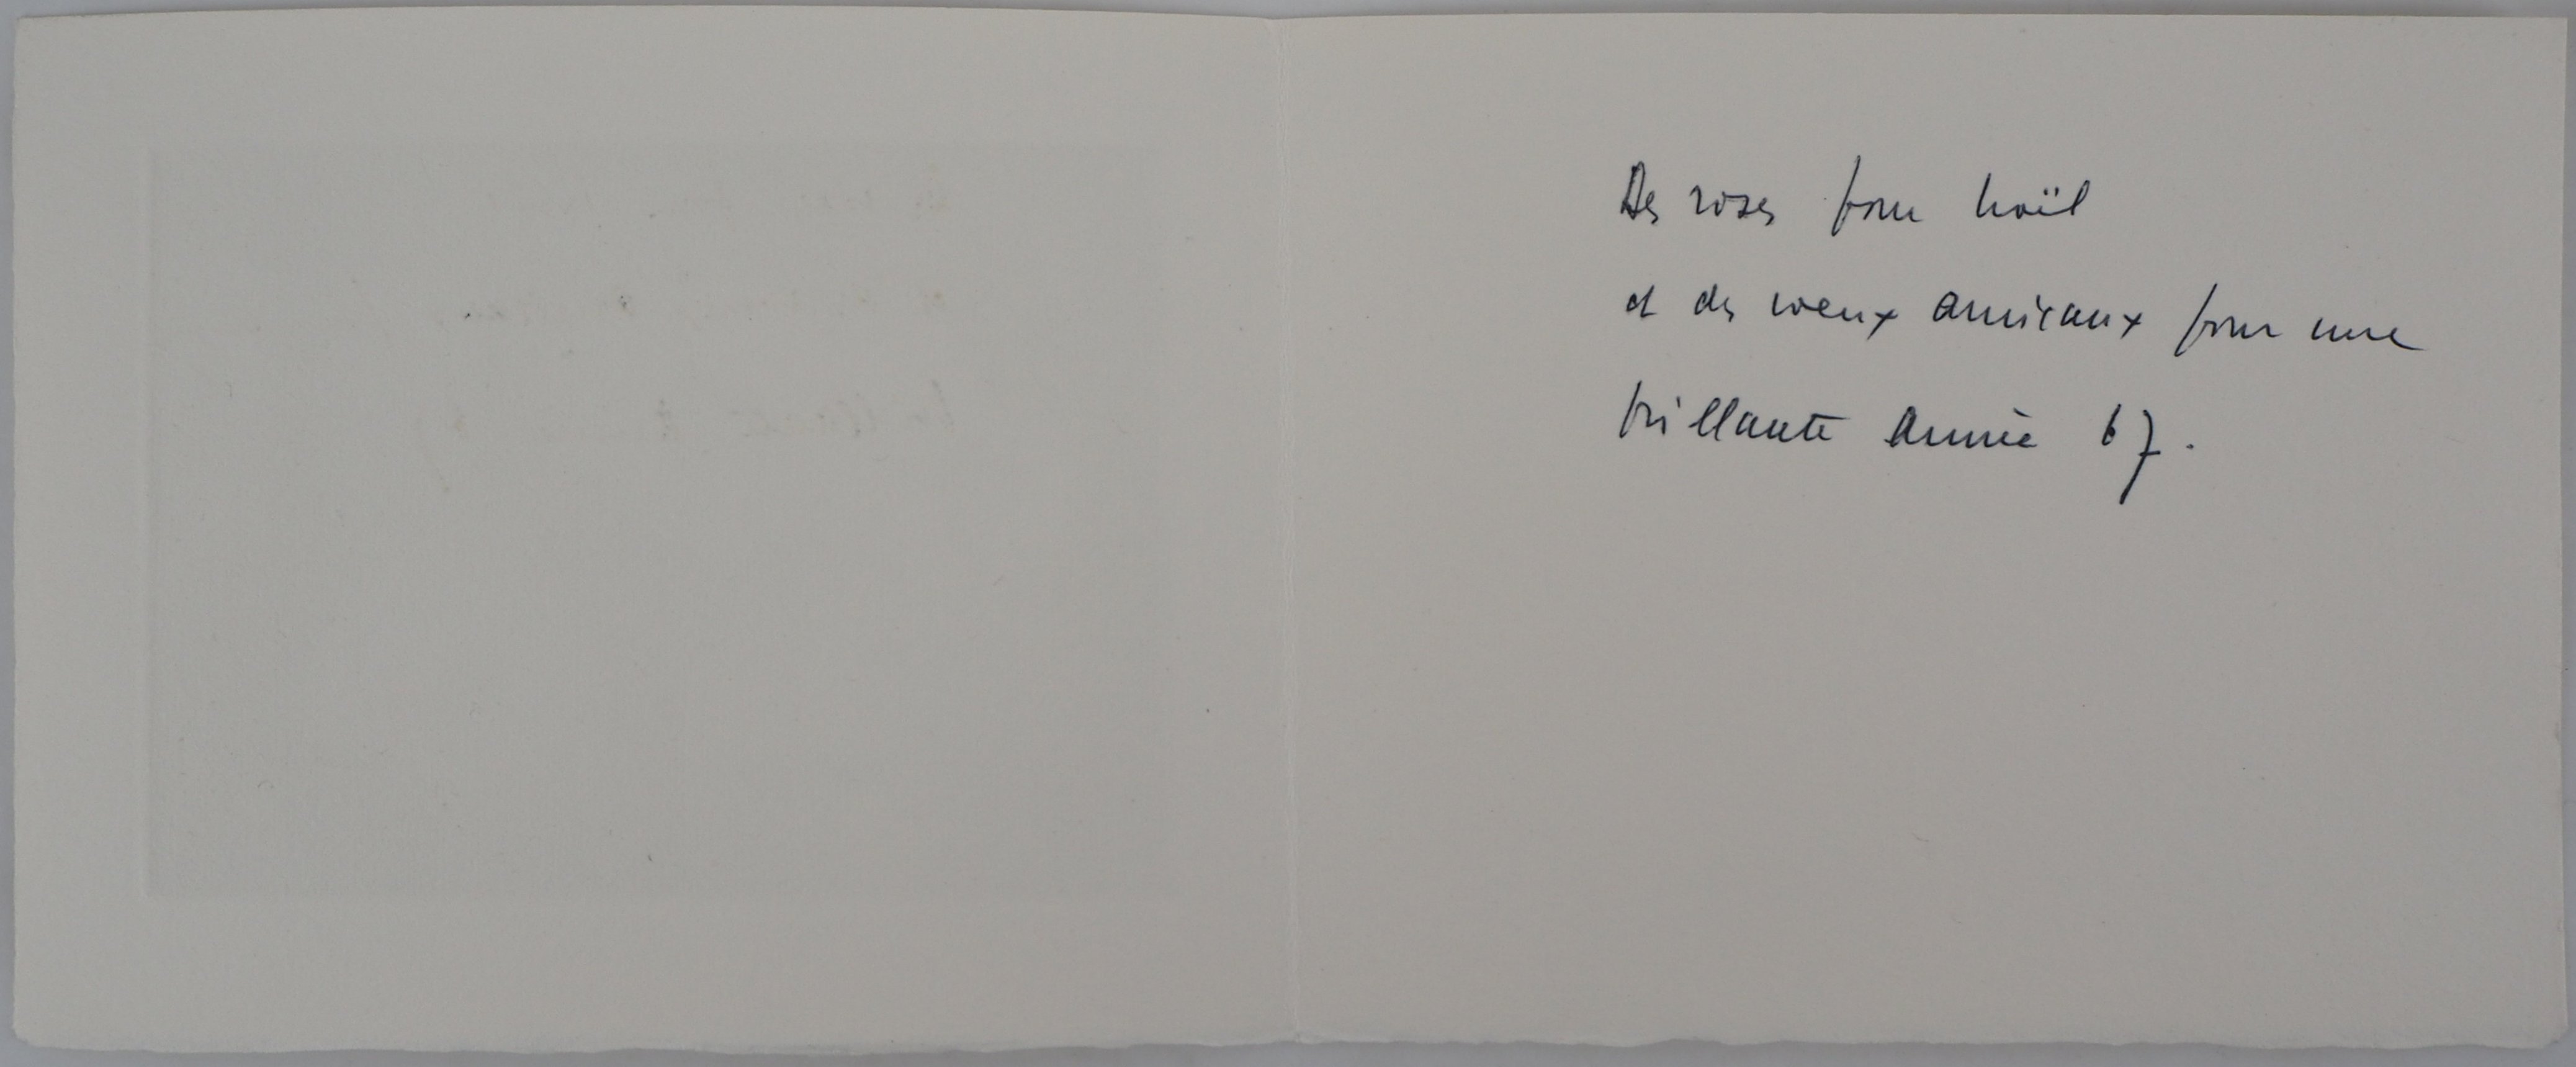 Des roses pour Noël
et des voeux amicaux pour une
brillante année 67.